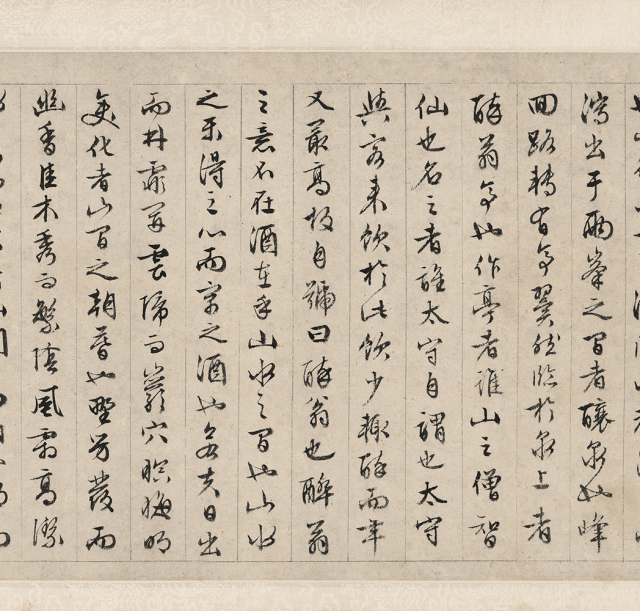 瀉出于兩峯之間者釀泉也峰
回路轉有亭翼然臨於泉上者
醉翁亭也作亭者誰山之僧智
仙也名之者誰太守自謂也太守
與客來飲於此飲少輒醉而年
又最高故自號曰醉翁也醉翁
之意不在酒在乎山水之間也山水
之樂得之心而寓之酒也若夫日出
而林霏開雲歸而巖穴暝晦明
變化者山間之朝暮也野芳發而
幽香佳木秀而繁陰風霜高潔